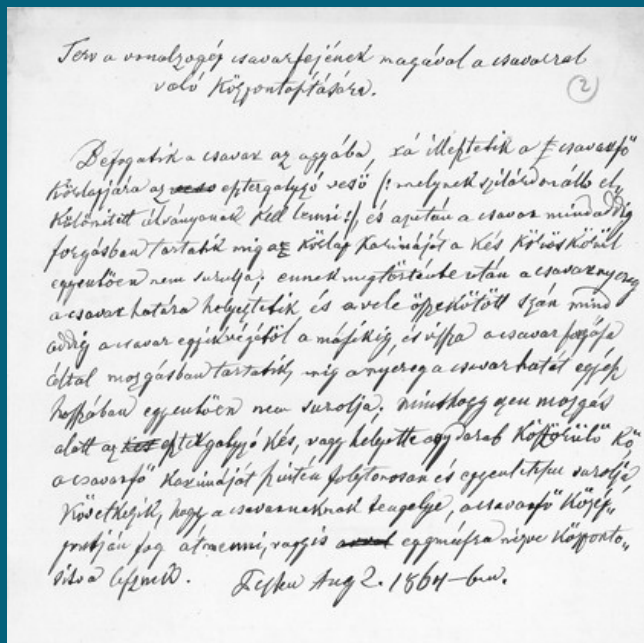 Terv a vonalzogép csavarfejének magával a csavarral
való Központosítására.
(2)
Befogatik a csavar az agyába, rá illesztetik a csavarfő
Körlapjára az esztergalyzó véső /: melynek szilárdon álló el„
Különitett álványonak Kell lenni :/, és azután a csavar mindaddig
forgásban tartatik mig az Körlap Karimáját a Kés Körös Körül
egyenlöen nem surolja; ennek megtörténte után a csavarnyereg
a csavar határa helyeztetik és a vele öszekötött szán mind
addig a csavar egyik végétöl a másikig, és vissza a csavar forgása
által mozgásban tartatik, mig a nyereg a csavar hatát egész
hosszában egyenlöen nem surolja; minthogy ezen mozgás
alatt az esztergalyzó Kés, vagy helyette egy darab Köszörülö Kő
a csavarfő Karimáját szintén folytonosan és egyenletesen surolja
Következik, hogy a csavarnaknak tengelye, a csavarfő Közép„
pontján fog átmenni, vagyis egymásra nézve Központo„
sitva lesznek. Aug 2. 1864–ben.